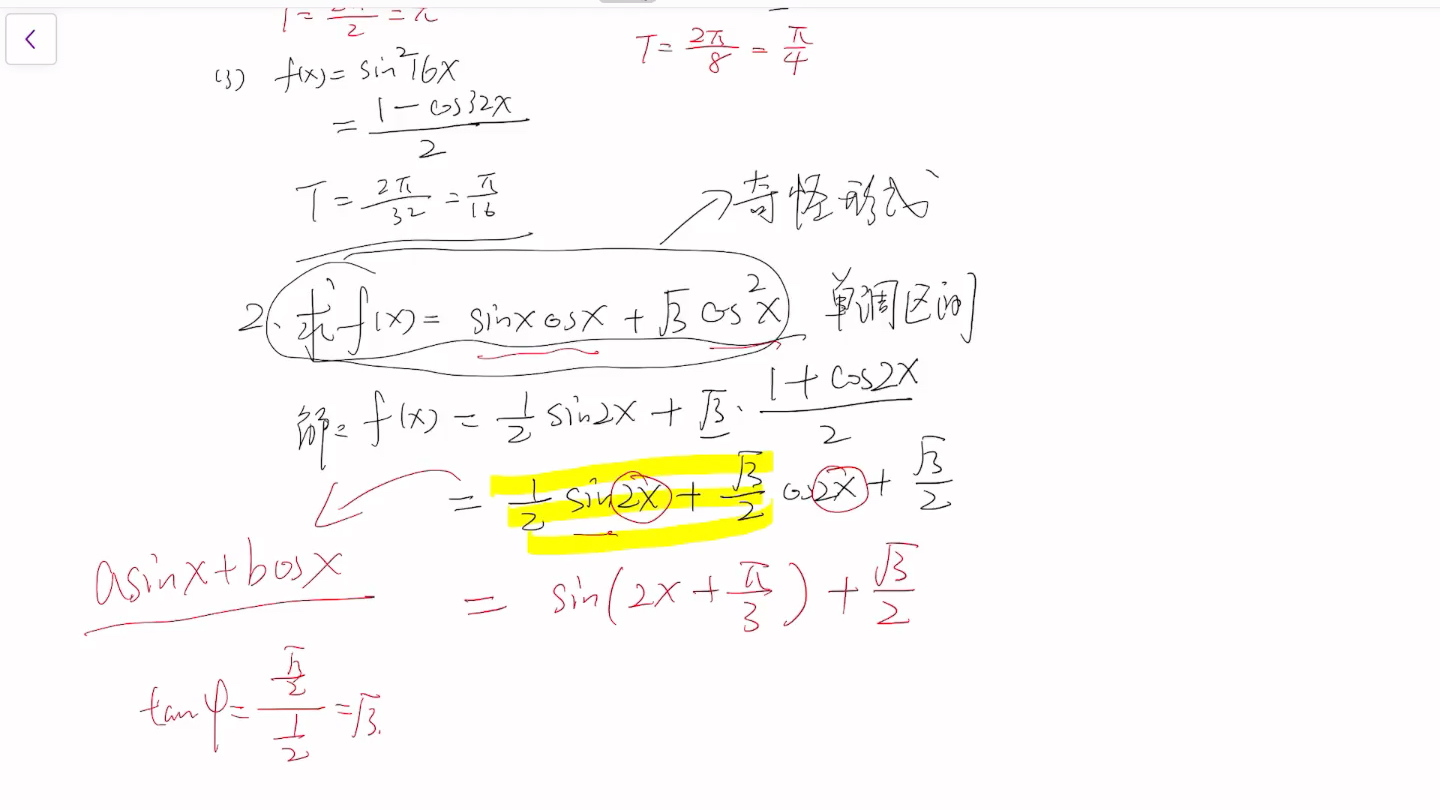 T = 2π/2 = π
T = 2π/8 = π/4
(3) f(x) = sin²16x
= (1 - cos32x)/2
T = 2π/32 = π/16
奇怪形式
2. 求 f(x) = sinxcosx + √3 cos²x 单调区间
解: f(x) = 1/2 sin2x + √3 · (1 + cos2x)/2
= 1/2 sin2x + √3/2 cos2x + √3/2
asinx + bcosx
= sin(2x + π/3) + √3/2
tanφ = (√3/2)/(1/2) = √3.